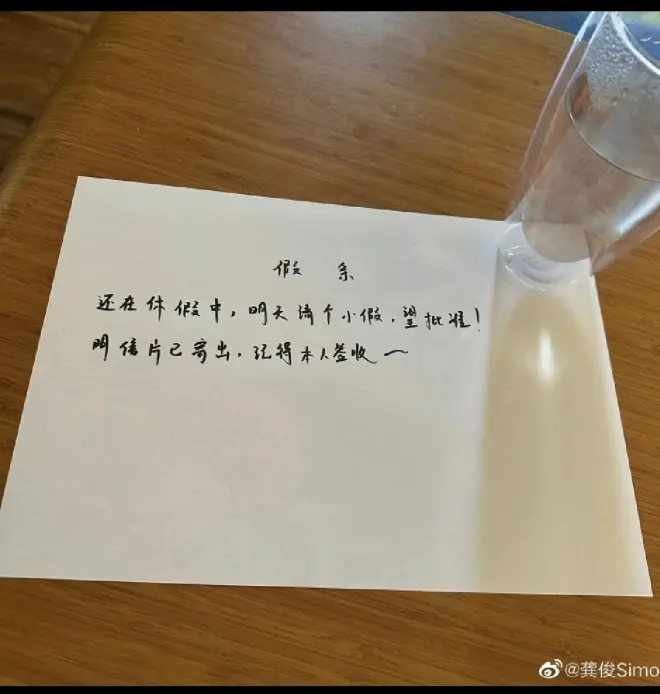 假条
还在休假中，明天请个小假，望批准！
明信片已寄出，记得本人签收～
@龚俊Simo